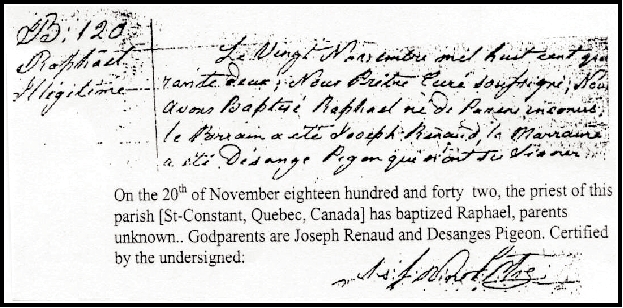 B: 120
Raphael
Illégitime
Le Vingt Novembre mil huit cent qua
rante deux; Nous Prêtre Curé soussigné, Nous
avons Baptisé Raphael né de Parens inconus
le Parrain a été Joseph Renaud, la Marraine
a été Désange Pigeon qui n'ont su signer
On the 20th of November eighteen hundred and forty two, the priest of this
parish [St-Constant, Quebec, Canada] has baptized Raphael, parents
unknown.. Godparents are Joseph Renaud and Desanges Pigeon. Certified
by the undersigned: